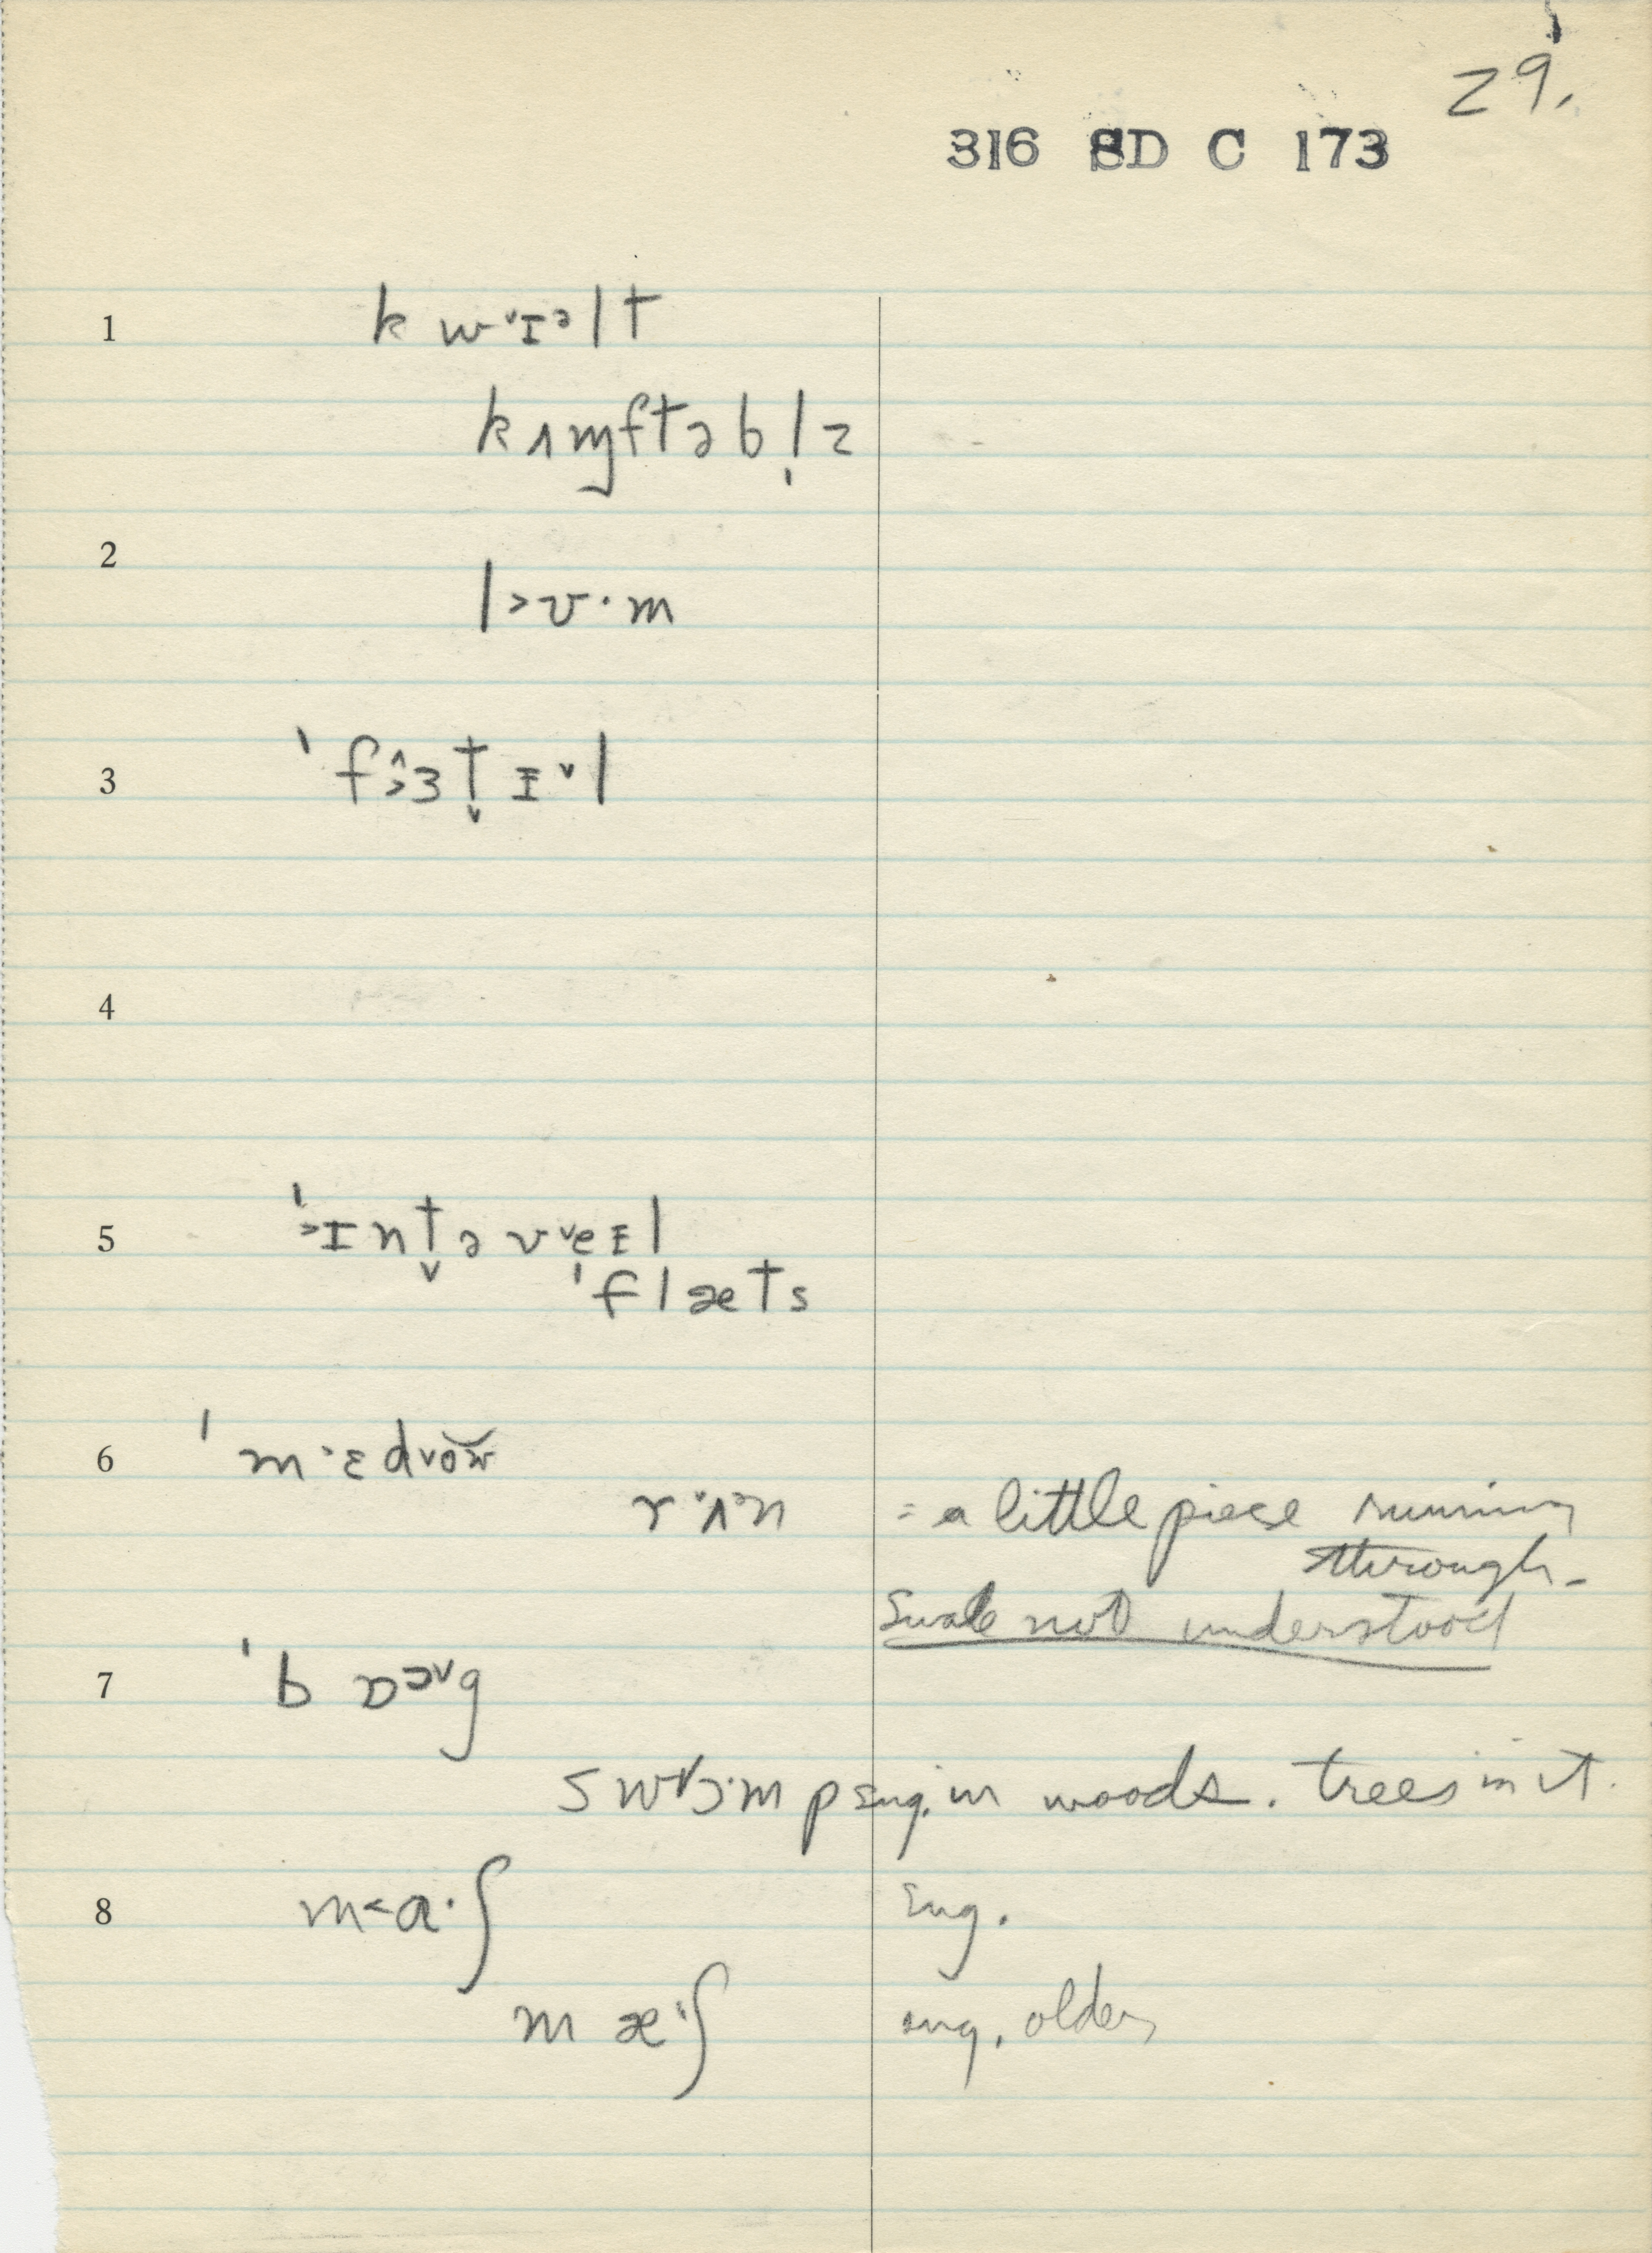 29.
316 SD C 173
1 k w ᵛɪᵊ l t
kʌɱftəbl̩z
2 l>ʊ·m
3 ˈfɜt̬ɪᵛl
5 ˈ>ɪnt̬əvᵛeɪl
ˈflæts
6 ˈm·ɛdᵛow̆
rʌ·n = a little piece running
through-
Swale not understood
7 ˈbɒɔᵛg
swɒ·mp Eng. in woods. trees in it.
8 m<a·ʃ Eng.
m æ·ʃ Eng. older